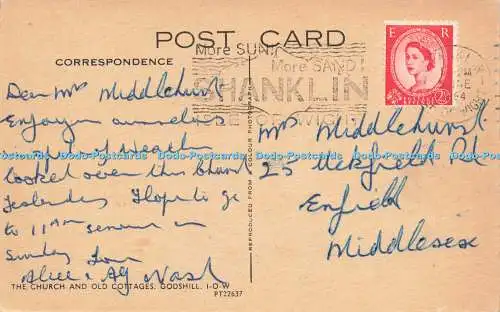 POST CARD
CORRESPONDENCE
More SUN!
More SAND!
SHANKLIN
ISLE OF WIGHT
E R
Dear Mrs Middlehurst
Enjoying ourselves
in spite of weather
looked over this Church
Yesterday I hope to go
to 11 AM service on
Sunday love
Alice & Nash
Mrs Middlehurst
25 Uckfield Rd
Enfield
Middlesex
REPRODUCED FROM A COLOUR PHOTOGRAPH
THE CHURCH AND OLD COTTAGES, GODSHILL, I-O-W
PT22637
Dodo-Postcards Dodo-Postcards Dodo-Postcards Dodo-Postcards